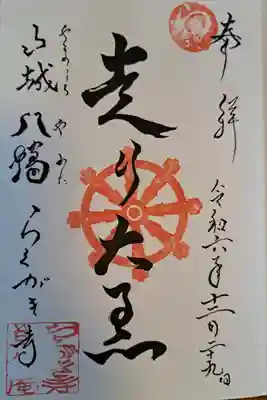 奉拝
令和六年十二月二十九日
走り大黒
山城八幡らくがき寺
やましろ やわた